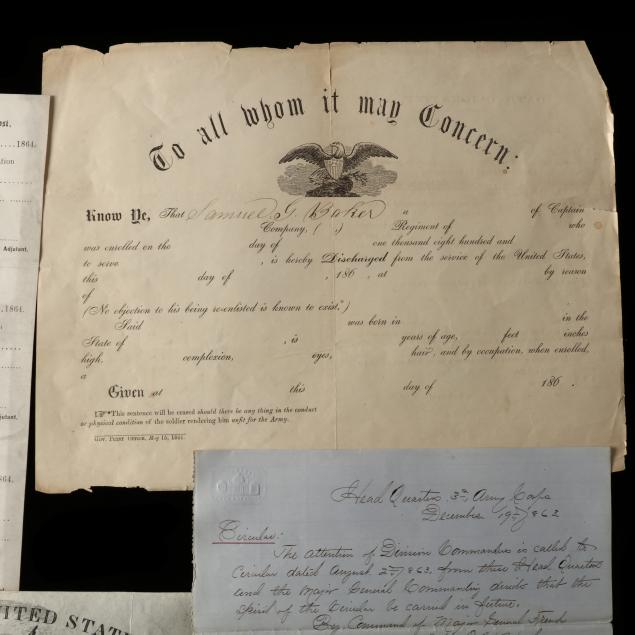 ost.
1864.
Adjutant.
1864.
djutant.
864.
To all whom it may Concern:
Know Ye, That Samuel G. Baker a of Captain
Company, ( .) Regiment of who
was enrolled on the day of one thousand eight hundred and
to serve , is hereby Discharged from the service of the United States,
this day of , 186 , at by reason
of
(No objection to his being re-enlisted is known to exist.*)
Said was born in in the
State of , is years of age, feet inches
high, complexion, eyes, hair, and by occupation, when enrolled,
a
Given at this day of 186 .
*This sentence will be erased should there be any thing in the conduct
or physical condition of the soldier rendering him unfit for the Army.
Gov. Print. Office, May 15, 1861.
Head Quarters 3rd Army Corps
December 19th/1863
Circular:
The attention of Division Commanders is called to
Circular dated August 2nd/1863, from these Head Quarters
and the Major General Commanding directs that the
spirit of the Circular be carried in future.
By Command of Major General French
UNITED STAT